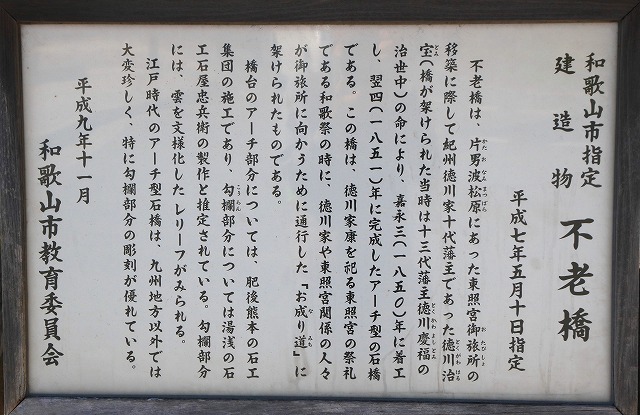 和歌山市指定
建造物 不老橋
平成七年五月十日指定
不老橋は、片男波松原にあった東照宮御旅所の
移築に際して紀州徳川家十代藩主であった徳川治
宝(橋が架けられた当時は十三代藩主徳川慶福の
治世中)の命により、嘉永三(一八五〇)年に着工
し、翌四(一八五一)年に完成したアーチ型の石橋
である。この橋は、徳川家康を祀る東照宮の祭礼
である和歌祭の時に、徳川家や東照宮関係の人々
が御旅所に向かうために通行した「お成り道」に
架けられたものである。
橋台のアーチ部分については、肥後熊本の石工
集団の施工であり、勾欄部分については湯浅の石
工石屋忠兵衛の製作と推定されている。勾欄部分
には、雲を文様化したレリーフがみられる。
江戸時代のアーチ型石橋は、九州地方以外では
大変珍しく、特に勾欄部分の彫刻が優れている。
平成九年十一月
和歌山市教育委員会